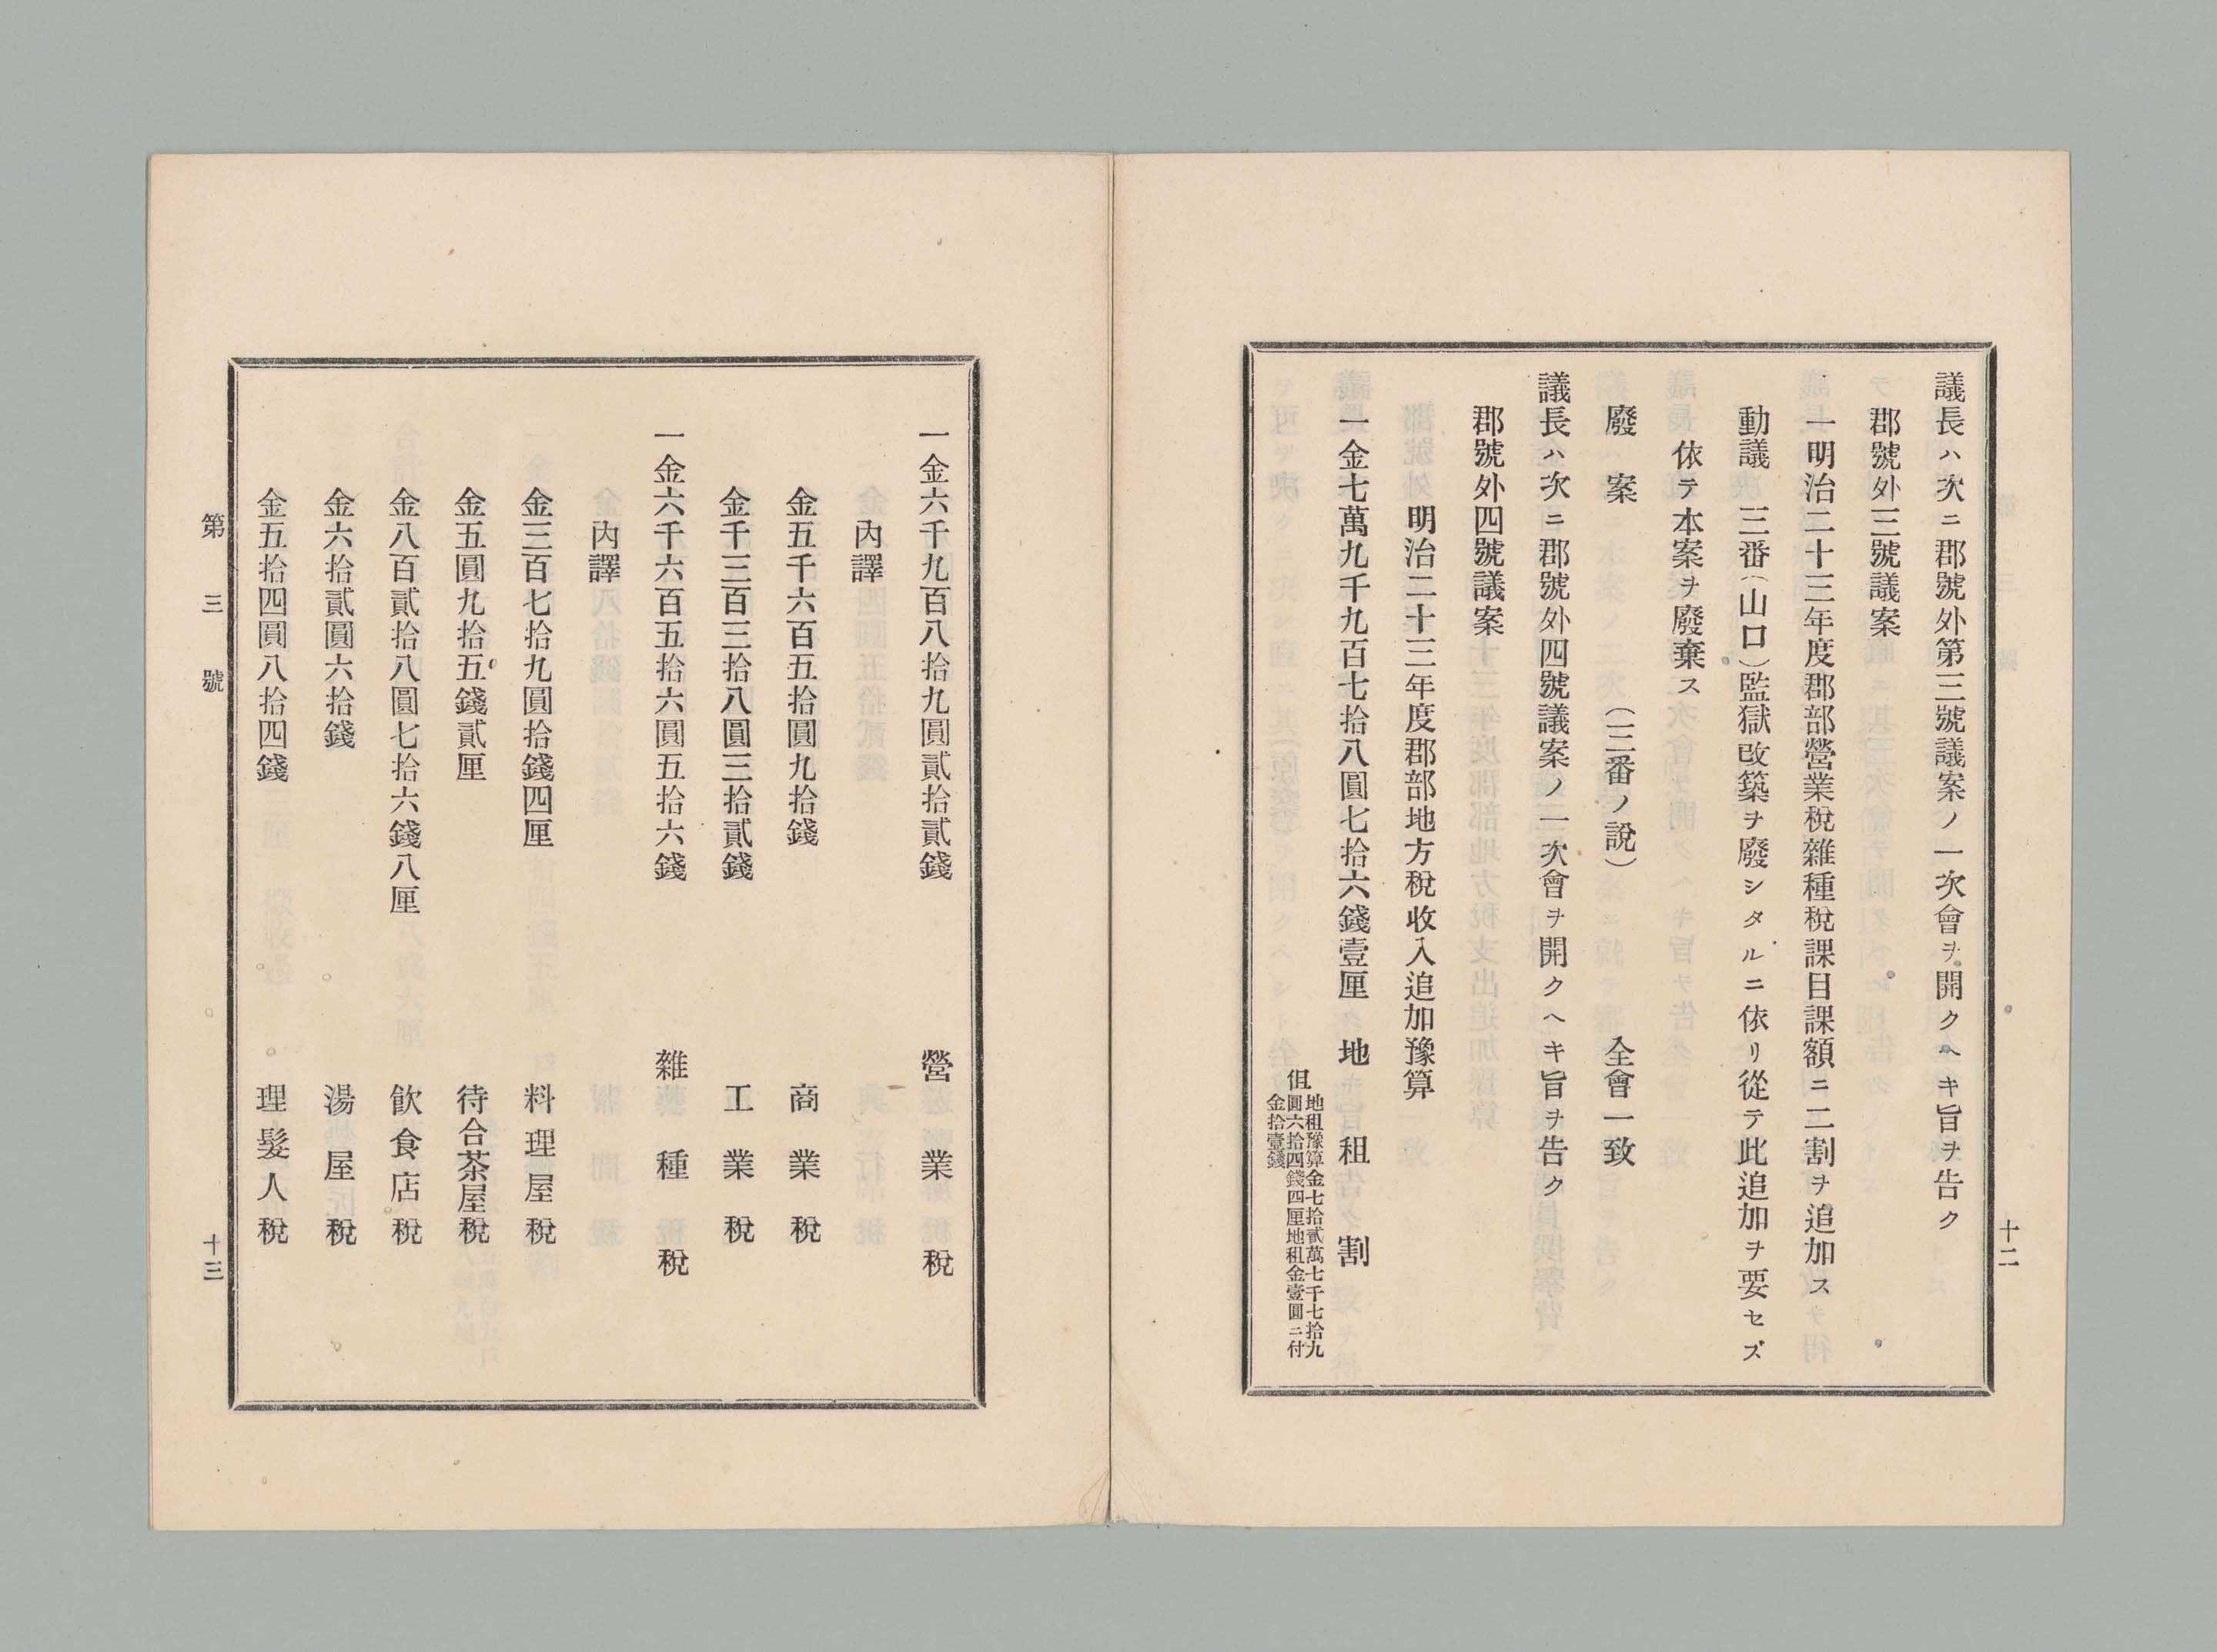 十二
議長ハ次ニ郡號外第三號議案ノ一次會ヲ開クヘキ旨ヲ告ク
郡號外三號議案
一明治二十三年度郡部營業稅雜種稅課目課額ニ二割ヲ追加ス
動議　三番（山口）監獄改築ヲ廢シタルニ依リ從テ此追加ヲ要セズ
依テ本案ヲ廢棄ス
廢　案　（三番ノ說）　全會一致
議長ハ次ニ郡號外四號議案ノ一次會ヲ開クヘキ旨ヲ告ク
郡號外四號議案
明治二十三年度郡部地方稅收入追加豫算
一金七萬九千九百七拾八圓七拾六錢壹厘　地租割
但
地租豫算金七拾貳萬七千七拾九
圓六拾四錢四厘地租金壹圓ニ付
金拾壹錢
一金六千九百八拾九圓貳拾貳錢　營業稅
內譯
金五千六百五拾圓九拾錢　商業稅
金千三百三拾八圓三拾貳錢　工業稅
一金六千六百五拾六圓五拾六錢　雜種稅
內譯
金三百七拾九圓拾錢四厘　料理屋稅
金五圓九拾五錢貳厘　待合茶屋稅
金八百貳拾八圓七拾六錢八厘　飮食店稅
金六拾貳圓六拾錢　湯屋稅
金五拾四圓八拾四錢　理髮人稅
第三號　十三